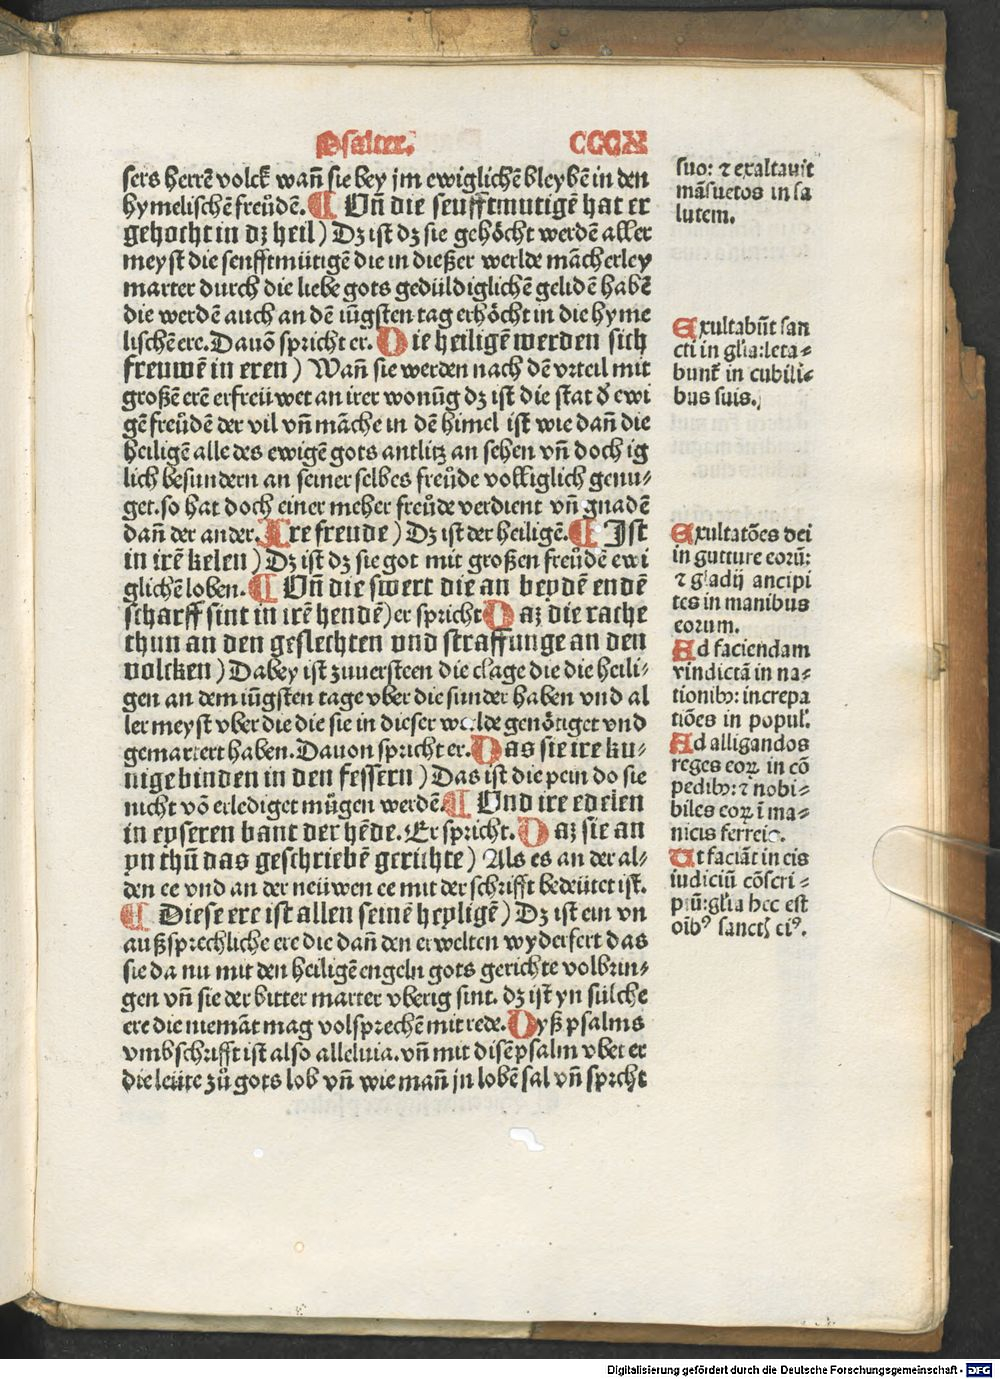 Psalter. CCCX
sers herrē volck wañ sie bey jm ewiglichē bleybē in den
hymelischē freůdē. ¶ Vñ die seufftmutigē hat er
gehocht in dz heil) Dz ist dz sie gehöcht werdē aller
meyst die senfftmütigē die in dießer werlde mācherley
marter durch die liebe gots gedüldiglichē gelidē habē
die werdē auch an dē iüngsten tag erhöcht in die hyme
lischē ere. Dauō spricht er. Die heiligē werden sich
freuwē in eren) Wañ sie werden nach dē vrteil mit
großē erē erfreüwet an irer wonūg dz ist die stat d̄ ewi
gē freůdē der vil vñ māche in dē himel ist wie dañ die
heiligē alle des ewigē gots antlitz an sehen vñ doch ig
lich besundern an seiner selbes freůde volkiglich genu⸗
get. so hat doch einer meher freůde verdient vñ gnadē
dañ der ander. Ire freude) Dz ist der heiligē. ¶ Ist
in irē kelen) Dz ist dz sie got mit großen freůdē ewi
glichē loben. ¶ Vñ die swert die an beydē endē
scharff sint in irē hendē) er spricht Daz die rache
thun an den geslechten vnd straffunge an den
volcken) Dabey ist zuuersteen die clage die die heili⸗
gen an dem iüngsten tage vber die sunder haben vnd al
ler meyst vber die die sie in dieser werlde genötiget vnd
gemartert haben. Dauon spricht er. Das sie ire ku⸗
nige binden in den fessern) Das ist die pein do sie
nicht vō erlediget mügen werdē. ¶ Vnd ire edelen
in eyseren bant der hēde. Er spricht. Daz sie an
yn thū das geschriebē gerichte) Als es an der al⸗
den ee vnd an der neüwen ee mit der schrifft bedeütet ist.
¶ Diese ere ist allen seinē heyligē) Dz ist ein vn
außsprechliche ere die dañ den erwelten wyderfert das
sie da nu mit den heiligē engeln gots gerichte volbrin⸗
gen vñ sie der bitter marter vberig sint. dz ist yn sülche
ere die niemāt mag volsprechē mit rede. Dyß psalms
vmbschrifft ist also alleluia. vñ mit disē psalm vbet er
die leüte zů gots lob vñ wie mañ jn lobē sal vñ spricht
suo: ⁊ exaltauit
māsuetos in sa
lutem.
Exultabūt san
cti in gl̄ia: leta⸗
bunt̄ in cubili⸗
bus suis.
Exultatōes dei
in gutture eorū:
⁊ gladij ancipi
tes in manibus
eorum.
Ad faciendam
vindictā in na⸗
tionibꝰ: increpa
tiōes in popul'.
Ad alligandos
reges eoꝝ in cō
pedibꝰ: ⁊ nobi⸗
biles eoꝝ ī ma⸗
nicis ferreis.
Ut faciāt in eis
iudiciū cōscri⸗
ptū: gl̄ia hec est
oībꝰ sanctꝭ eiꝰ.
Digitalisierung gefördert durch die Deutsche Forschungsgemeinschaft - DFG